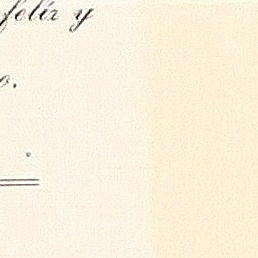 feliz y
o.